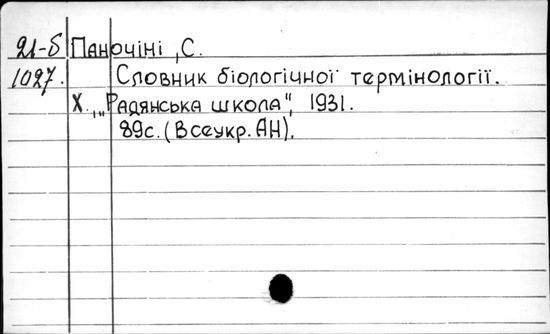 21-б Паночіні, С.
1027. Словник біологічної термінології.
Х. „Радянська школа", 1931.
89с. (Всеукр. АН).